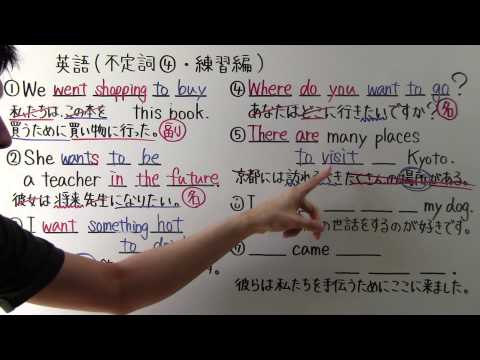 英語(不定詞④・練習編)
① We went shopping to buy
this book.
私たちは、この本を
買うために買い物に行った。 副
② She wants to be
a teacher in the future.
彼女は将来先生になりたい。 名
I want something hot
to
④ Where do you want to go?
あなたはどこに行きたいですか? 名
⑤ There are many places
to visit ___ Kyoto.
京都には訪れる たくさんの場所がある。
I ___ ___ my dog.
の世話をするのが好きです。
___ came ___
___ ___ ___.
彼らは私たちを手伝うためにここに来ました。